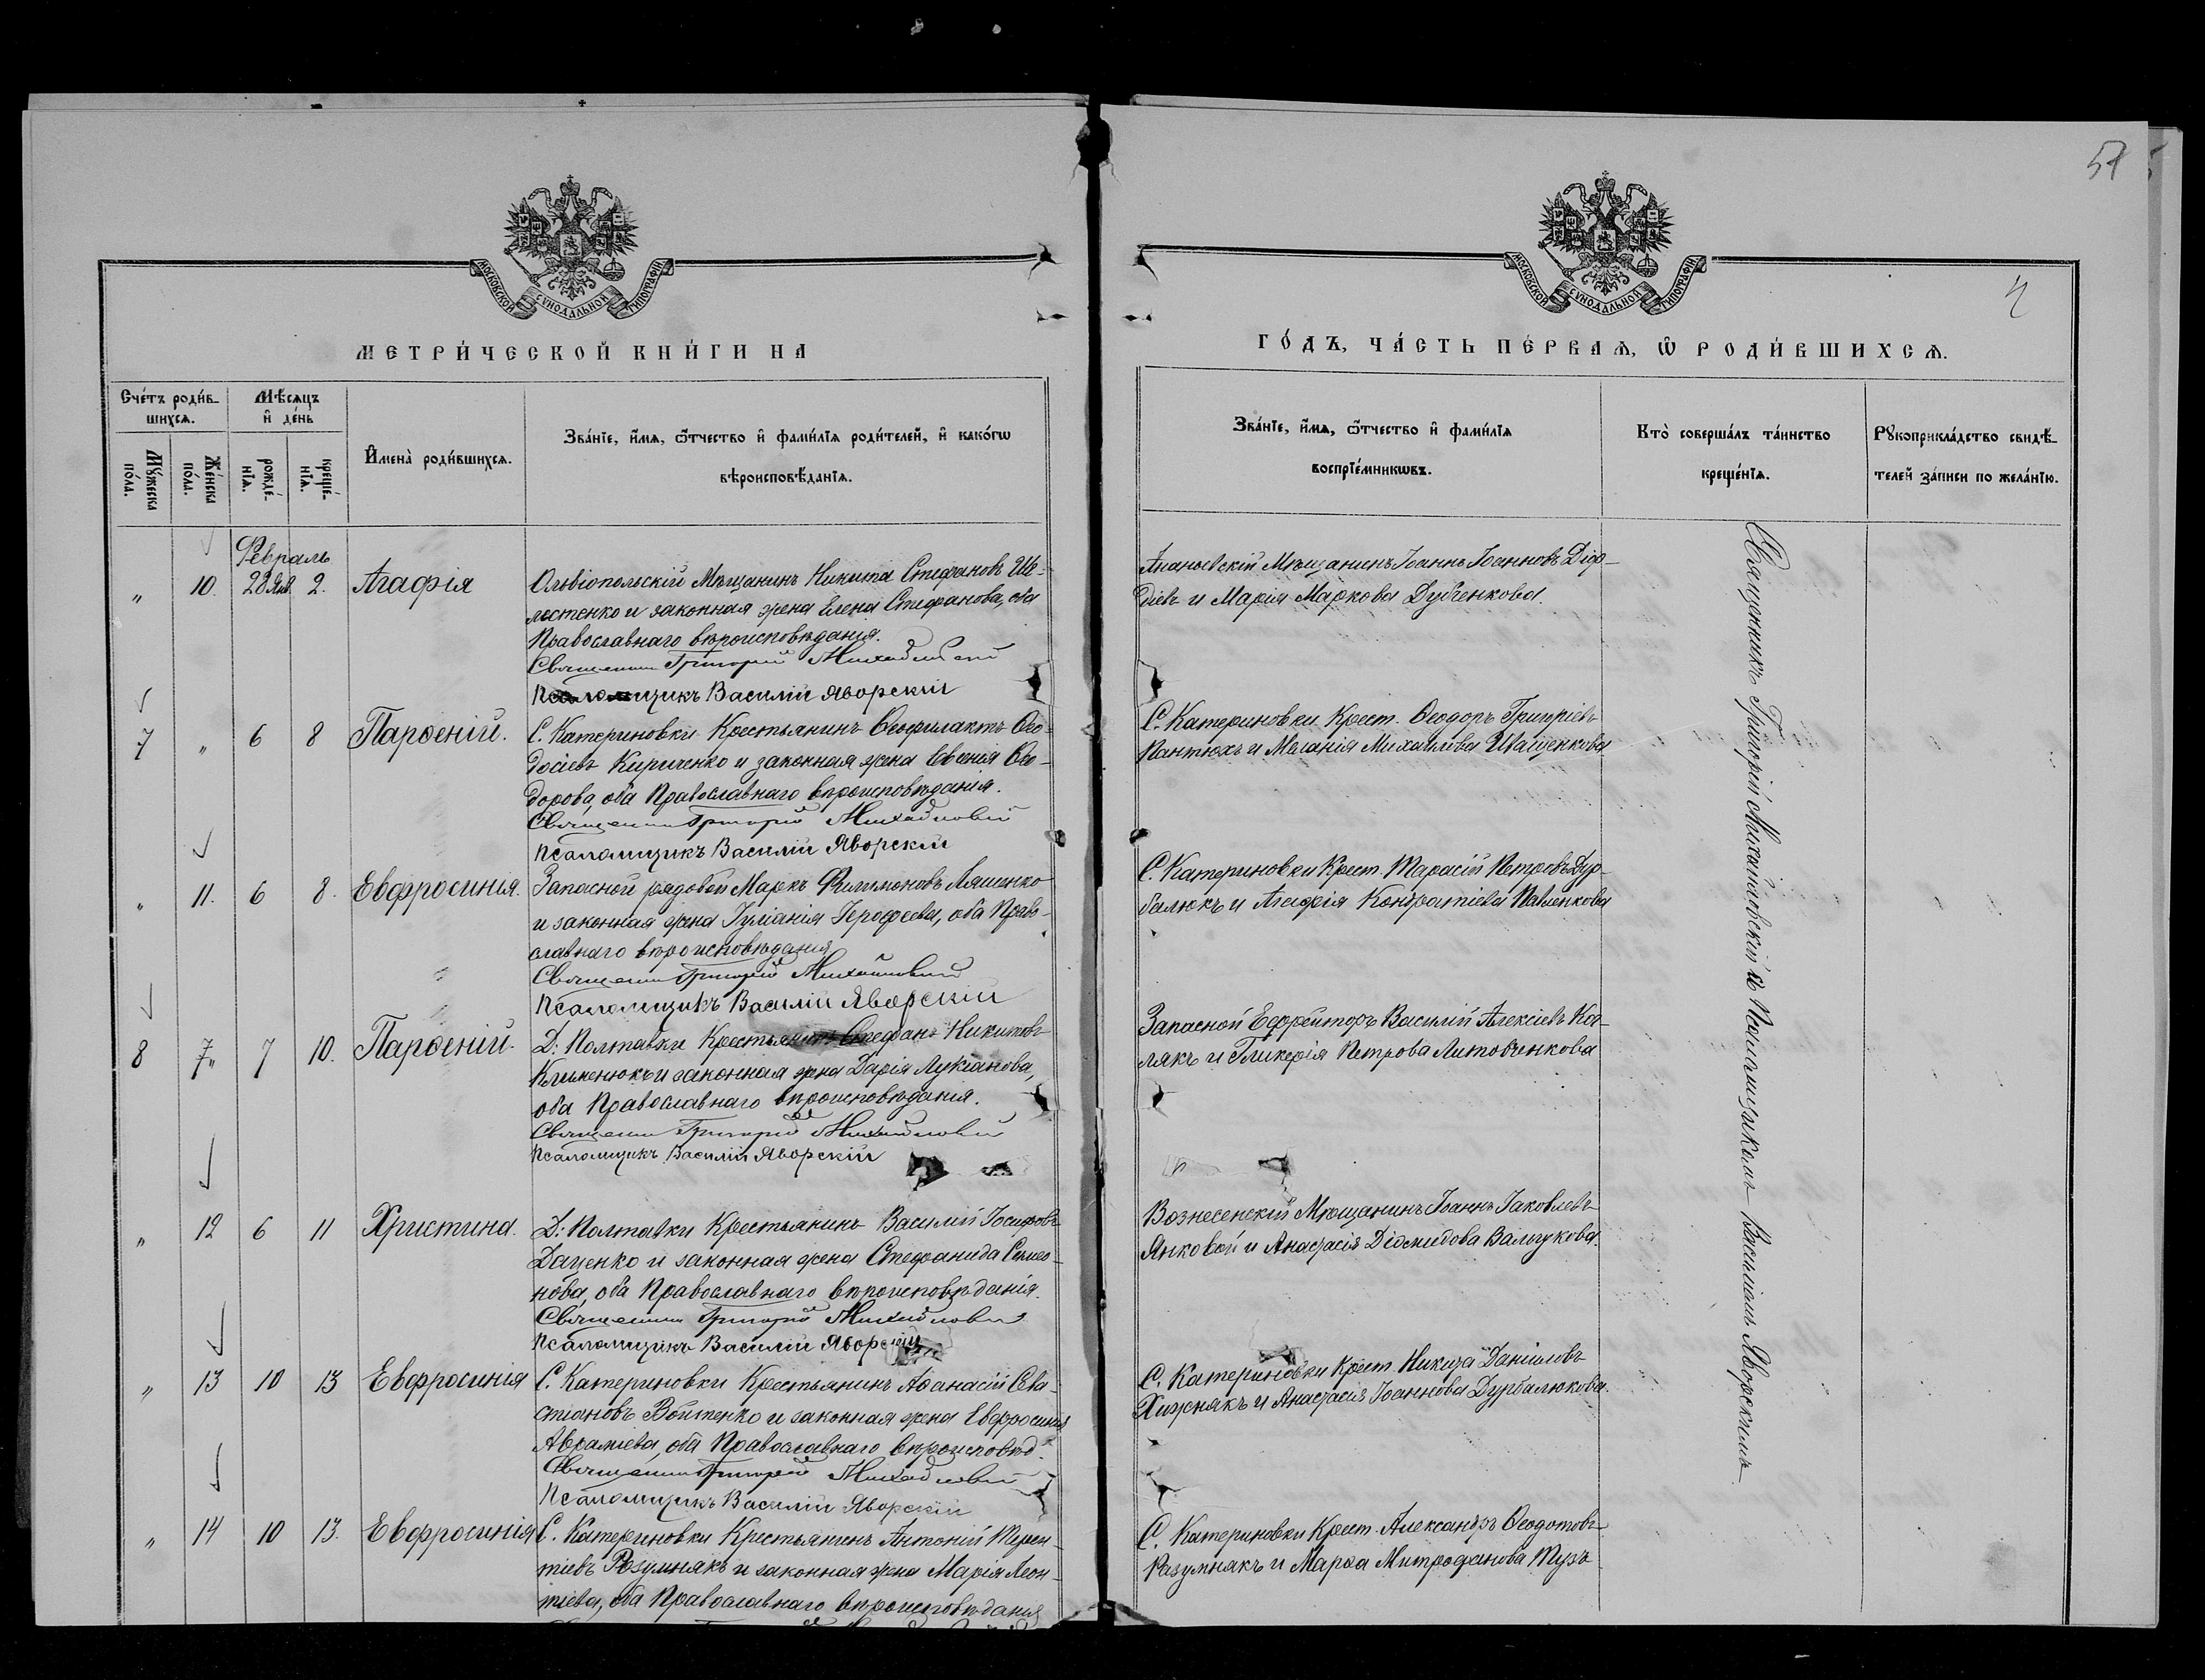 54
МОСКОВСКОЙ СѴНОДАЛЬНОЙ ТИПОГРАФІИ
МОСКОВСКОЙ СѴНОДАЛЬНОЙ ТИПОГРАФІИ
МЕТРИ́ЧЕСКОЙ КНИ́ГИ НА
ГО́ДЪ, ЧА́СТЬ ПЕ́РВАѦ, Ѽ РОДИ́ВШИХСѦ.
Сче́тъ роди́в-
шихсѧ.
Мѣ́сѧцъ
и҆ де́нь
Мꙋ́жеска
по́ла.
Же́нска
по́ла.
рожде́-
нїѧ.
креще́-
нїѧ.
И҆мена̀ роди́вшихсѧ.
Зва́нїе, и҆́мѧ, ѻ҆́тчество и҆ фами́лїѧ роди́телей, и҆ како́гѡ
вѣроисповѣ́данїѧ.
Зва́нїе, и҆́мѧ, ѻ҆́тчество и҆ фами́лїѧ
воспрїе́мникѡвъ.
Кто̀ соверша́лъ та́инство
креще́нїѧ.
Рꙋкоприкла́дство свидѣ́-
телей за́писи по жела́нїю.
Февраль
„ 10. 28 Янв. 2. Агафія
Ольвіопольскій Мѣщанинъ Никита Стефановъ Ше-
лестенко и законная жена Елена Стефанова, оба
Православнаго вѣроисповѣданія.
Священникъ Григорій Михайловскій
Псаломщикъ Василій Яворскій
Ананьевскій Мѣщанинъ Іоаннъ Іоанновъ
и Марія Маркова Дубченкова.
7 „ 6 8 Парѳеній.
С. Катериновки Крестьянинъ Ѳеофилактъ Ѳео-
досіевъ Кириченко и законная жена Евгенія Ѳео-
дорова, оба Православнаго вѣроисповѣданія.
Священникъ Григорій Михайловскій
Псаломщикъ Василій Яворскій
С. Катериновки Крест. Ѳеодоръ Григоріевъ
Пантюхъ и Меланія Михайлова Иващенкова
„ 11. 6 8. Евфросинія.
Запасной рядовой Маркъ Филимоновъ Ляшенко
и законная жена Іуліанія Іерофеева, оба Право-
славнаго вѣроисповѣданія
Священникъ Григорій Михайловскій
Псаломщикъ Василій Яворскій
С. Катериновки Крест. Тарасій Петровъ Дур-
балюкъ и Агафія Кондратіева Павленкова
8 7„ 7 10. Парѳеній.
Д: Полтавки Крестьянинъ Стефанъ Никитовъ
Клименюкъ и законная жена Дарія Лукіанова,
оба Православнаго вѣроисповѣданія.
Священникъ Григорій Михайловскій
Псаломщикъ Василій Яворскій
Запасной Ефрейторъ Василій Алексіевъ Ко-
лякъ и Гликерія Петрова Литовченкова
„ 12 6 11 Христина.
Д: Полтавки Крестьянинъ Василій Іосифовъ
Даценко и законная жена Стефанида Семео-
нова, оба Православнаго вѣроисповѣданія.
Священникъ Григорій Михайловскій
Псаломщикъ Василій Яворскій
Вознесенскій Мѣщанинъ Іоаннъ Іаковлевъ
Янковой и Анастасія Діомидова
„ 13 10 13 Евфросинія
С. Катериновки Крестьянинъ Аѳанасій Сева-
стіановъ Войтенко и законная жена Евфросинія
Авраміева, оба Православнаго вѣроисповѣд.
Священникъ Григорій Михайловскій
Псаломщикъ Василій Яворскій
С. Катериновки Крест. Никита Даніиловъ
Хижнякъ и Анастасія Іоаннова Дурбалюкова.
„ 14 10 13. Евфросинія
С. Катериновки Крестьянинъ Антоній Терен-
тіевъ Розумнякъ и законная жена Марія Леон-
тіева, оба Православнаго вѣроисповѣданія
С. Катериновки Крест. Александръ Ѳеодотовъ
Разумнякъ и Марѳа Митрофанова Тузъ
Священникъ Григорій Михайловскій съ Псаломщикомъ Василіемъ Яворскимъ.